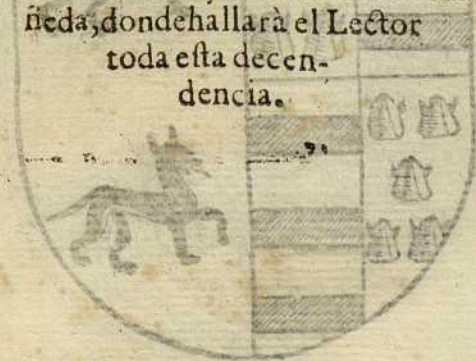 ñeda,dondehallarà el Lector
toda esta decen-
dencia.